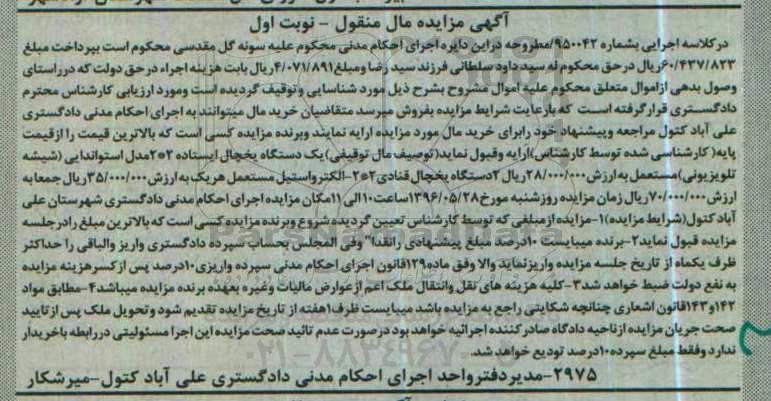 آگهی مزایده مال منقول - نوبت اول
درکلاسه اجرایی بشماره ۹۵۰۰۴۲/مطروحه دراین دایره اجرای احکام مدنی محکوم علیه سونه گل مقدسی محکوم است بپرداخت مبلغ
۶۰/۴۳۷/۸۲۳ریال درحق محکوم له سید داود سلطانی فرزند سید رضا ومبلغ۴/۰۷۱/۸۹۱ریال بابت هزینه اجراء درحق دولت که درراستای
وصول بدهی ازاموال متعلق محکوم علیه اموال مشروح بشرح ذیل مورد شناسایی وتوقیف گردیده است ومورد ارزیابی کارشناس محترم
دادگستری قرارگرفته است که بارعایت شرایط مزایده بفروش میرسد متقاضیان خرید مال میتوانند به اجرای احکام مدنی دادگستری
علی آباد کتول مراجعه وپیشنهاد خود رابرای خرید مال مورد مزایده ارایه نمایند وبرنده مزایده کسی است که بالاترین قیمت را ازقیمت
پایه(کارشناسی شده توسط کارشناس)ارایه وقبول نماید(توصیف مال توقیفی)یک دستگاه یخچال ایستاده ۲*۲مدل استواندایی (شیشه
تلویزیونی)مستعمل به ارزش ۲۸/۰۰۰/۰۰۰ریال ۲دستگاه یخچال قنادی۲*۲-الکترواستیل مستعمل هریک به ارزش ۳۵/۰۰۰/۰۰۰ریال جمعا به
ارزش ۷۰/۰۰۰/۰۰۰ریال زمان مزایده روزشنبه مورخ۱۳۹۶/۰۵/۲۸ساعت۱۰الی۱۱مکان مزایده اجرای احکام مدنی دادگستری شهرستان علی
آباد کتول(شرایط مزایده)۱-مزایده ازمبلغی که توسط کارشناس تعیین گردیده شروع وبرنده مزایده کسی است که بالاترین مبلغ رادرجلسه
مزایده قبول نماید۲-برنده میبایست ۱۰درصد مبلغ پیشنهادی رانقدا" وفی المجلس بحساب سپرده دادگستری واریز والباقی را حداکثر
ظرف یکماه از تاریخ جلسه مزایده واریزنماید والا وفق ماده۱۲۹قانون اجرای احکام مدنی سپرده واریزی۱۰درصد پس ازکسرهزینه مزایده
به نفع دولت ضبط خواهد شد۳-کلیه هزینه های نقل وانتقال ملک اعم ازعوارض مالیات وغیره بعهده برنده مزایده میباشد۴-مطابق مواد
۱۴۲و۱۴۳قانون اشعاری چنانچه شکایتی راجع به مزایده باشد میبایست ظرف۱هفته از تاریخ مزایده تقدیم شود وتحویل ملک پس ازتایید
صحت جریان مزایده ازناحیه دادگاه صادرکننده اجرائیه خواهد بود درصورت عدم تائید صحت مزایده این اجرا مسئولیتی دررابطه باخریدار
ندارد وفقط مبلغ سپرده۱۰درصد تودیع خواهد شد.
۲۹۷۵-مدیردفترواحد اجرای احکام مدنی دادگستری علی آباد کتول-میرشکار